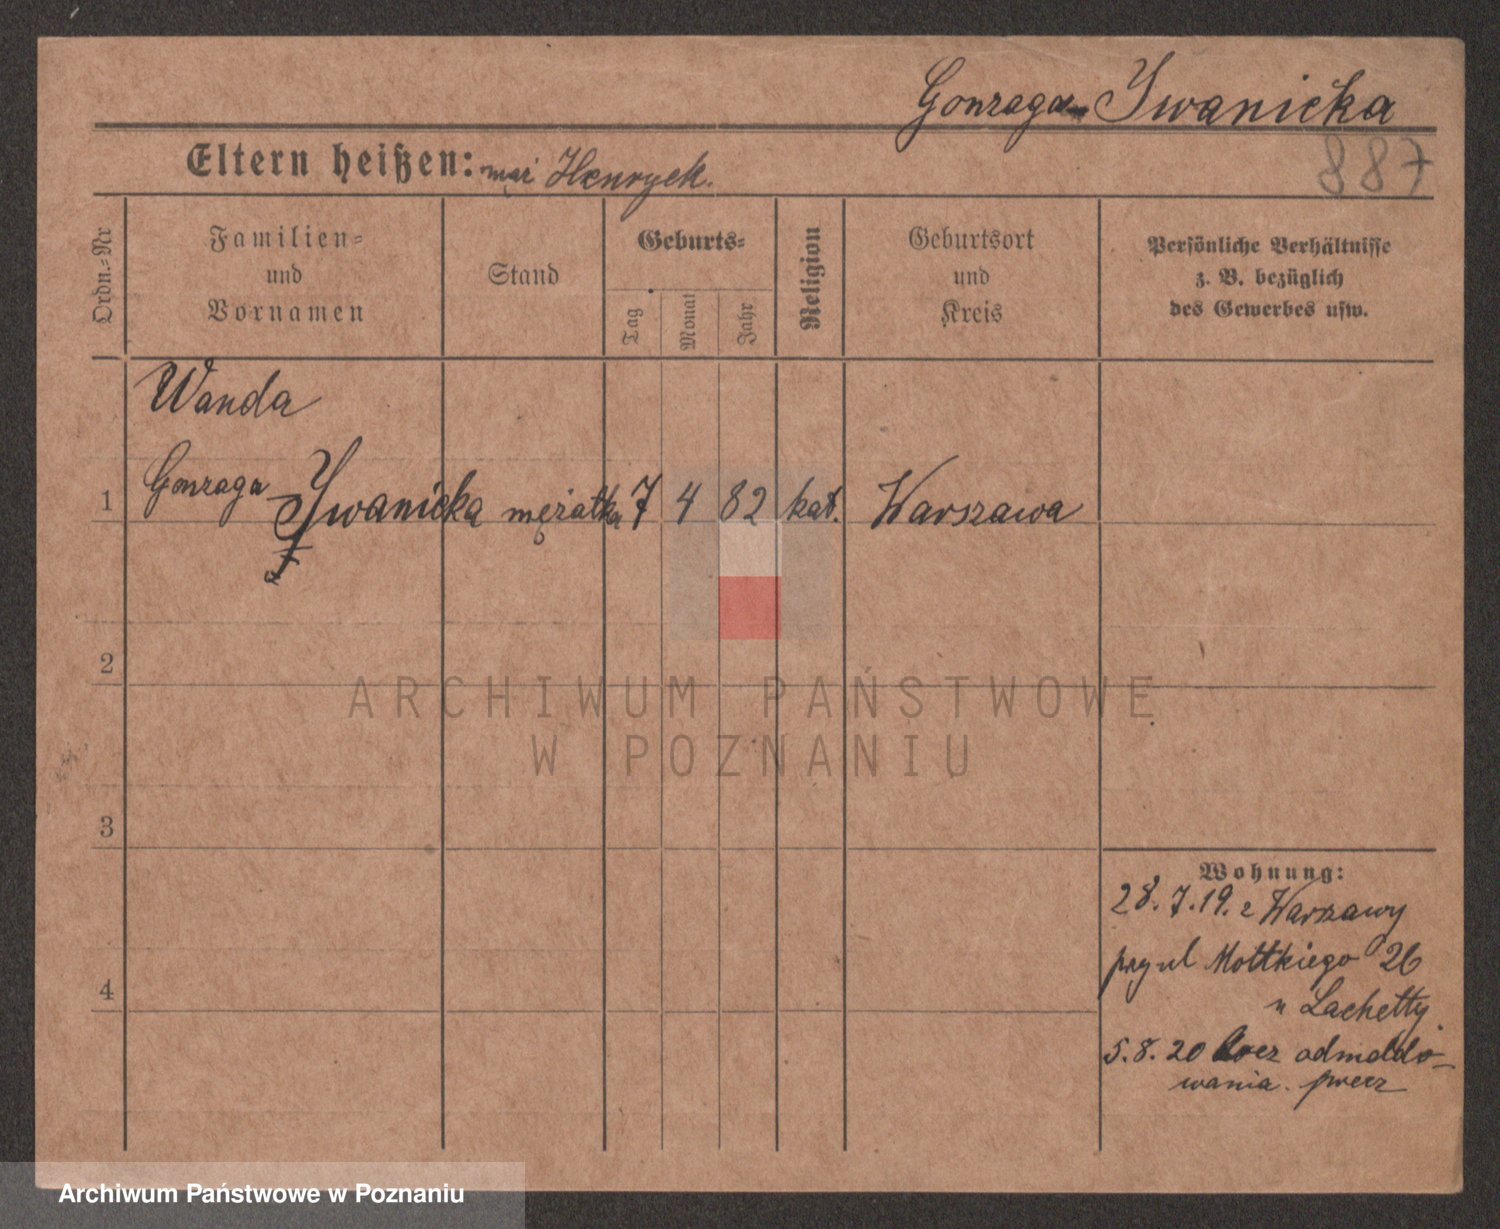 Gonzaga Iwanicka
887
Eltern heißen: mąż Henryck.
Ordn.=Nr
Familien=
und
Vornamen
Stand
Geburts=
Tag
Monat
Jahr
Religion
Geburtsort
und
Kreis
Persönliche Verhältnisse
z. B. bezüglich
des Gewerbes usw.
Wanda
1 Gonzaga Iwanicka mężatka 7 4 82 kat. Warszawa
2
ARCHIWUM PAŃSTWOWE
W POZNANIU
3
4
Wohnung:
28.7.19. z Warszawy
przy ul Moltkiego 26
u Lachetty.
5.8.20 bez odmeldo-
wania. precz
Archiwum Państwowe w Poznaniu